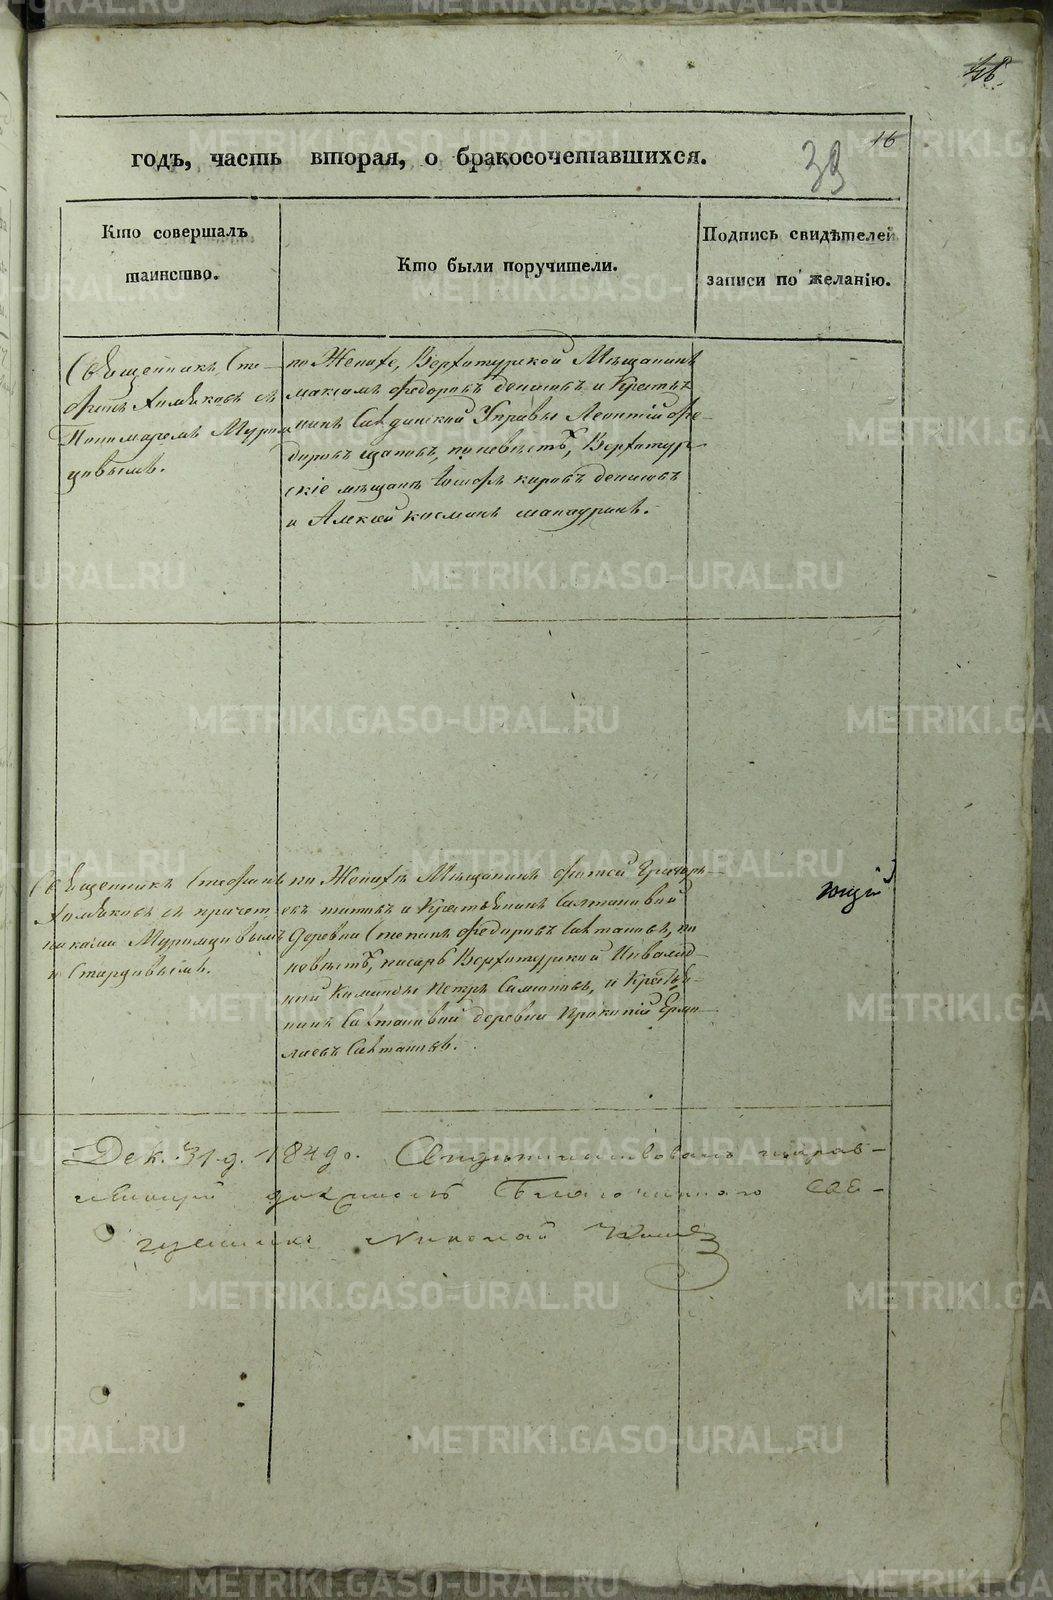 16
39
годъ, часть вторая, о бракосочетавшихся.
Кто совершалъ
таинство.
Кто были поручители.
Подпись свидѣтелей
записи по желанію.
Священникъ Сте-
фанъ Хомяковъ съ
Пономаремъ Муром-
цовымъ.
по Женихе, Верхотурской Мѣщанинъ
максимъ федоровъ денисовъ и Кресть-
нинъ Управы Леонтій фе-
доровъ щаповъ, по невѣстѣ, Верхотур-
скіе мѣщане денисовъ
и Алексей козминъ
Священникъ Стефанъ
Хомяковъ съ причет-
никами Муромцовымъ
и
по Женихѣ Мѣщанинъ Григорь-
евъ титовъ и Крестьянинъ Салтановой
деревни Степанъ федоровъ Салтановъ, по
невѣстѣ, писарь Верхотурской Инвалид-
ной Команды Петръ и Крестья-
нинъ Салтановой деревни Прокопій Ермо-
лаевъ Салтановъ.
ющій
Дек. 31 д. 1849 г. Свидѣтельствовалъ исправ-
ляющій должность Благочиннаго Свя-
щенникъ Николай
METRIKI.GASO-URAL.RU